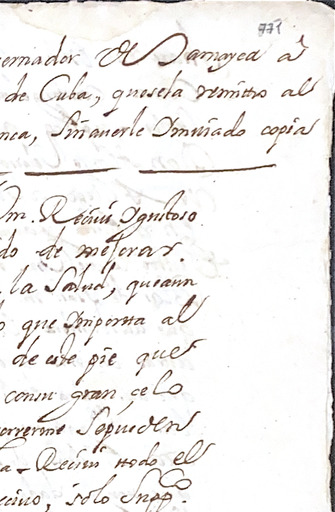 771
ernador de Jamayca a
de Cuba, quesela remitio al
nca, sin averle Imviado copia
Vm. Recivi Igustoso
do de mejorar
la Salud, queaun
o que Importta al
de este pie que
con su gran celo
correrme sepueden
Recivi ttodo el
recivo, solo Supp.co